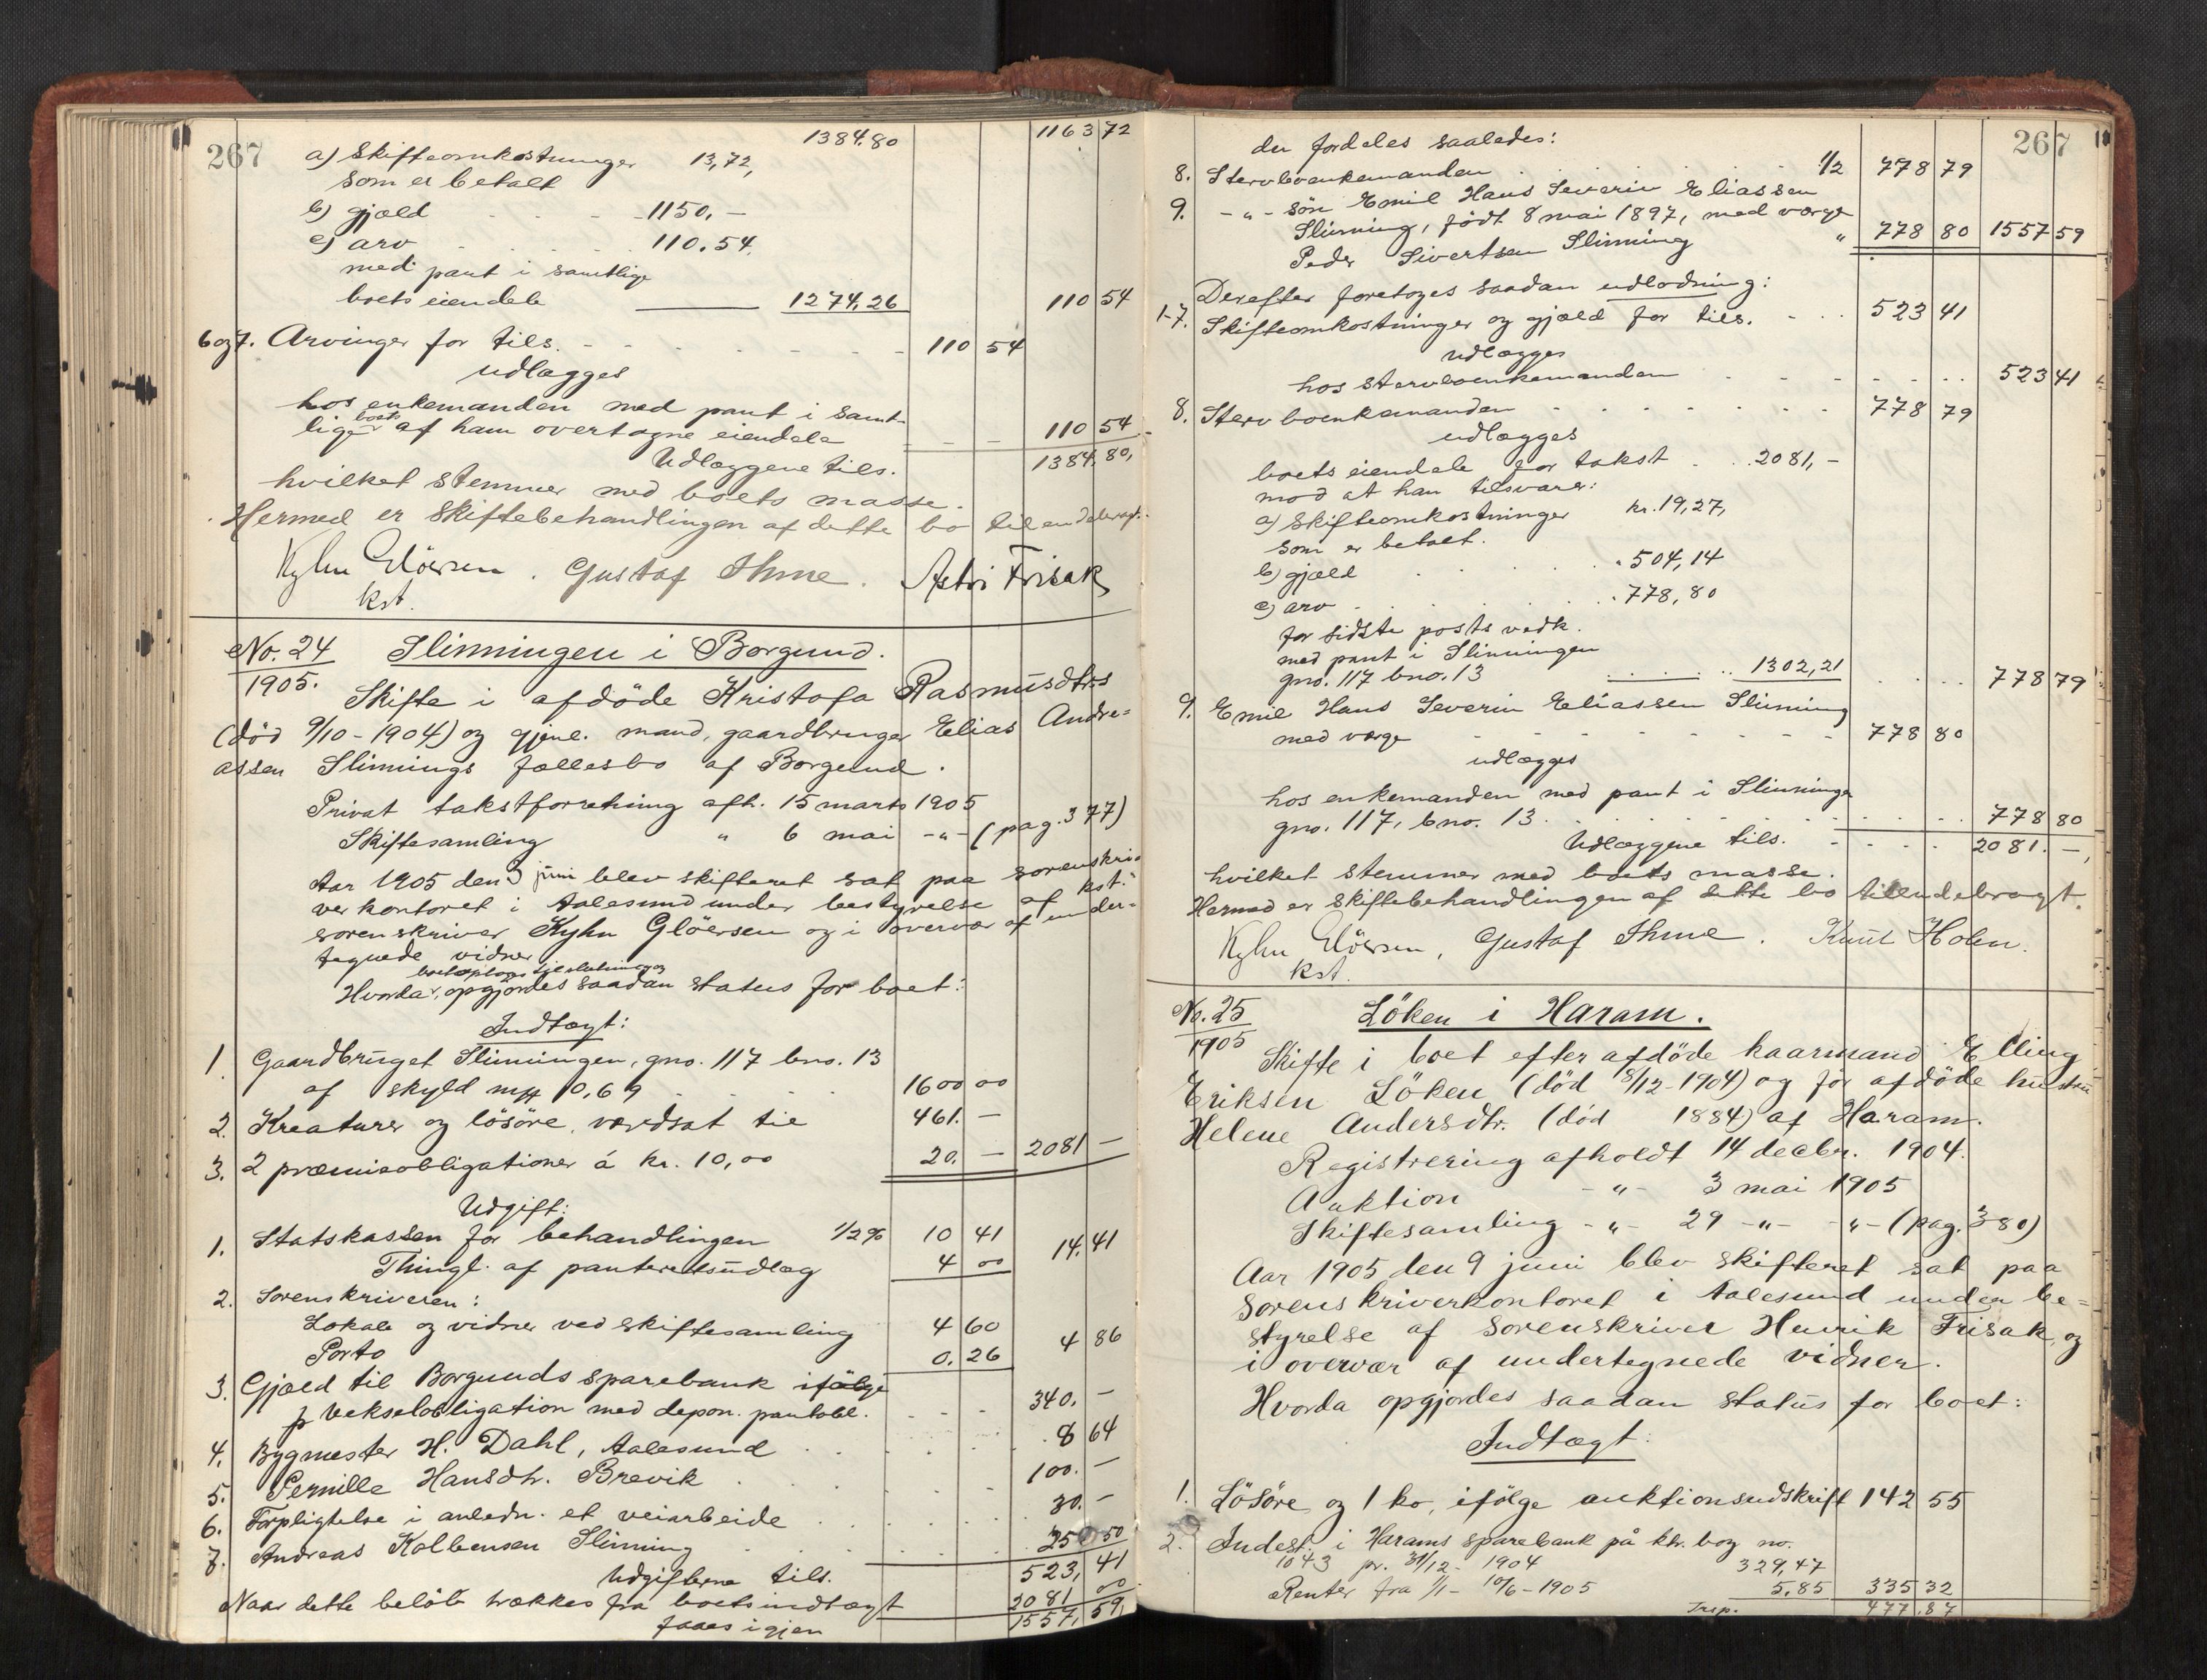 267
1384.80 1163 72
a) Skifteomkostninger 13,72,
som er betalt
b) gjæld - - - 1150.-
c) arv . . . . . 110.54.
med pant i samtlige
boets eiendele 1274,26 110 54
6 og 7. Arvinger for tils. - - - - - - - 110 54
udlægges
hos enkemanden med pant i samt-
lige boets af ham overtagne eiendele - - - 110 54
Udlæggene tils. 1384,80,
hvilket stemmer med boets masse.
Hermed er skiftebehandlingen af dette bo tilendebragt.
Kyhn Glöersen. Gustaf Thme. Astri Frisak
kst.
No. 24 Slinningen i Borgund.
1905.
Skifte i afdöde Kristofa Rasmusdtrs
(död 9/10-1904) og gjenl. mand, gaardbruger Elias Andre=
assen Slinnings fællesbo af Borgund.
Privat takstforretning afh. 15 marts 1905
Skiftesamling " 6 mai -"- (pag. 377)
Aar 1905 den 9 juni blev skifteret sat paa sorenskri-
verkontoret i Aalesund under bestyrelse af kst.
sorenskriver Kyhn Glöersen og i overvær af under=
tegnede vidner
Hvorda opgjordes saadan status for boet:
Indtægt:
1. Gaardbruget Slinningen, gno. 117 bno. 13
af skyld mrk 0,69 . . . . 1600 00
2. Kreaturer og lösöre, værdsat til 461. -
3. 2 præmieobligationer á kr. 10,00 20. - 2081 -
Udgift:
1. Statskassen for behandlingen 1/2 % 10 41
Thingl. af panteretsudlæg 4 00 14. 41
2. Sorenskriveren:
Lokale og vidner ved skiftesamling 4 60
Porto 0. 26 4 86
3. Gjæld til Borgunds sparebank ifölge
p vekselobligation med depon. pantobl. - - - 340. -
4. Bygmester H. Dahl, Aalesund . . . . 8 64
5. Pernille Hansdtr. Brevik . . . . 100. -
6. Forpligtelse i anledn. et veiarbeide . . . . 30. -
7. Andreas Kolbensen Slinning . . . . 25 50
Udgifterne tils. 523, 41
Naar dette belöb trækkes fra boets indtægt 2081 00
faaes igjen 1557, 59,
267
der fordeles saaledes:
8. Stervboenkemanden . . . . 1/2 778 79
9. -"- sön Emil Hans Severin Eliassen
Slinning, födt 8 mai 1897, med værge
Peder Sivertsen Slinning " 778 80 1557 59
Derefter foretoges saadan udlodning:
1-7. Skifteomkostninger og gjæld for tils. - . . 523 41
udlægges
hos stervboenkemanden - - - - . . . 523 41
8. Stervboenkemanden - - - - - - 778 79
udlægges
boets eiendele for takst . . 2081,-
mod at han tilsvarer:
a) skifteomkostninger kr. 19,27,
som er betalt.
b) gjæld . . . . 504,14
c) arv . . . . . 778,80
for sidste posts vedk.
med pant i Slinningen
gno. 117 bno. 13 . . . . . . 1302,21 . . . 778 79
9. Emil Hans Severin Eliassen Slinning
med værge - - - - - - - - 778 80
udlægges
hos enkemanden med pant i Slinningen
gno. 117, bno. 13. . . . . . . . . . 778 80
Udlæggene tils. - - - - 2081. -,
hvilket stemmer med boets masse.
Hermed er skiftebehandlingen af dette bo tilendebragt.
Kyhn Glöersen, Gustaf Thme. Knut Holen.
kst.
No. 25 Löken i Haram.
1905
Skifte i boet efter afdöde kaarmand Elling
Eriksen Löken (död 8/12-1904) og för afdöde hustru
Helene Andersdtr. (död 1884) af Haram.
Registrering afholdt 14 decbr. 1904.
Auktion -"- 3 mai 1905
Skiftesamling -"- 29 -"- -"- (pag. 380)
Aar 1905 den 9 juni blev skifteret sat paa
Sorenskriverkontoret i Aalesund under be=
styrelse af sorenskriver Henrik Frisak, og
i overvær af undertegnede vidner.
Hvorda opgjordes saadan status for boet:
Indtægt:
1. Lösöre og 1 ko, ifölge auktionsudskrift 142 55
2. Indest. i Harams sparebank på ktr. bog no.
1043 pr. 31/12-1904 329,47
Renter fra 1/1- 10/6-1905 5.85 335 32
Trsp. 477.87